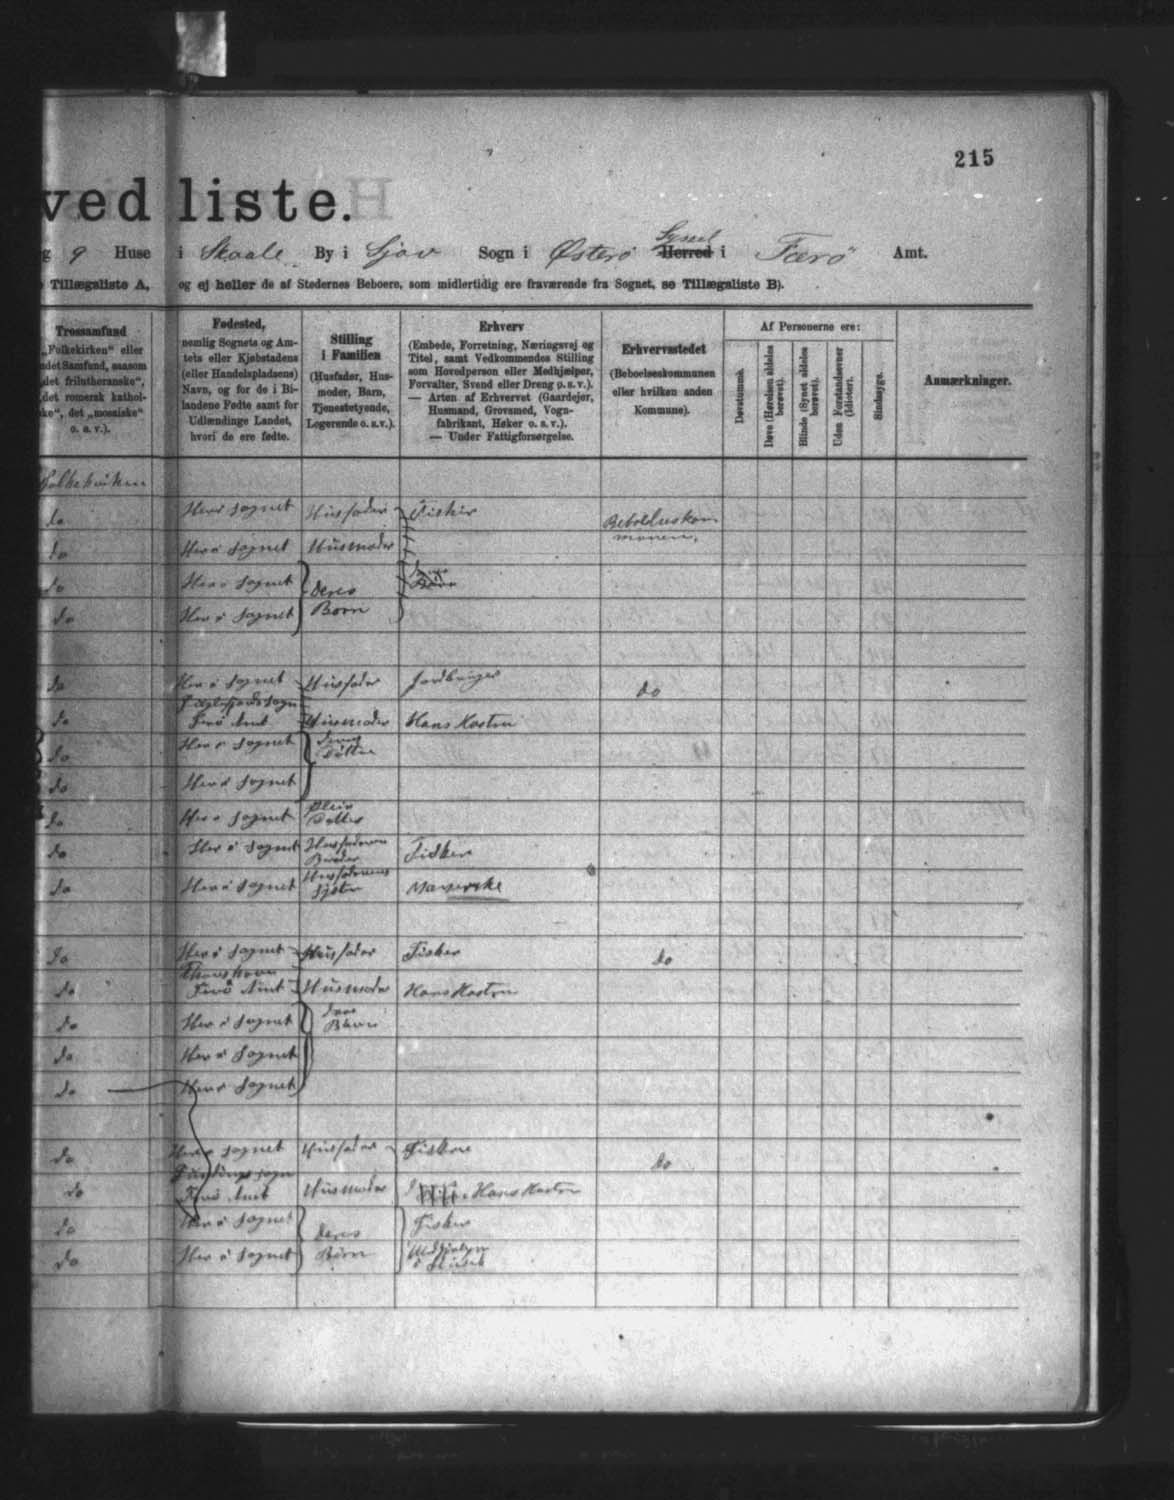 215
ved liste.
g 9 Huse i Skaale By i Sjov Sogn i Østerø Herred Syssel i Færø Amt.
Tillægsliste A, og ej heller de af Stedernes Beboere, som midlertidig ere fraværende fra Sognet, se Tillægsliste B).
Trossamfund
„Folkekirken“ eller
ndet Samfund, saasom
„det frilutheranske“,
„det romersk kathol-
ske“, det „mosaiske“
o. s. v.).
Fødested,
nemlig Sognets og Am-
tets eller Kjøbstadens
(eller Handelspladsens)
Navn, og for de i Bi-
landene Fødte samt for
Udlændinge Landet,
hvori de ere fødte.
Stilling
i Familien
(Husfader, Hus-
moder, Barn,
Tjenestetyende,
Logerende o. s.v.).
Erhverv
(Embede, Forretning, Næringsvej og
Titel, samt Vedkommendes Stilling
som Hovedperson eller Medhjælper,
Forvalter, Svend eller Dreng p. s. v.).
— Arten af Erhvervet (Gaardejer,
Husmand, Grovsmed, Vogn-
fabrikant, Høker o. s. v.).
— Under Fattigforsørgelse.
Erhvervsstedet
(Beboelseskommunen
eller hvilken anden
Kommune).
Af Personerne ere:
Døvstumme.
Døve (Hørelsen aldeles
berøvet).
Blinde (Synet aldeles
berøvet).
Uden Forstandsevner
(Idioter).
Sindssyge.
Anmærkninger.
Folkekirken
do Her i Sognet Husfader Fisker Beboelseskom
munen.
do Her i Sognet Husmoder
do Her i Sognet deres
do Her i Sognet Børn
do Her i Sognet Husfader Jordbruger do
do Færø Amt Husmoder Hans Kosten
do Her i Sognet Datter
do Her i Sognet
do Her i Sognet Datter
do Her i Sognet Husfaderens Broder Fisker
do Her i Sognet Husfaderens Syster
do Her i Sognet Husfader Fisker do
Thorshavn
do Færø Amt Husmoder Hans Kosten
do Her i Sognet deres Børn
do Her i Sognet
do Her i Sognet
do Her i Sognet Husfader Fisker do
do Færø Amt Husmoder Hans Kosten
do Her i Sognet deres Fisker
do Her i Sognet Børn